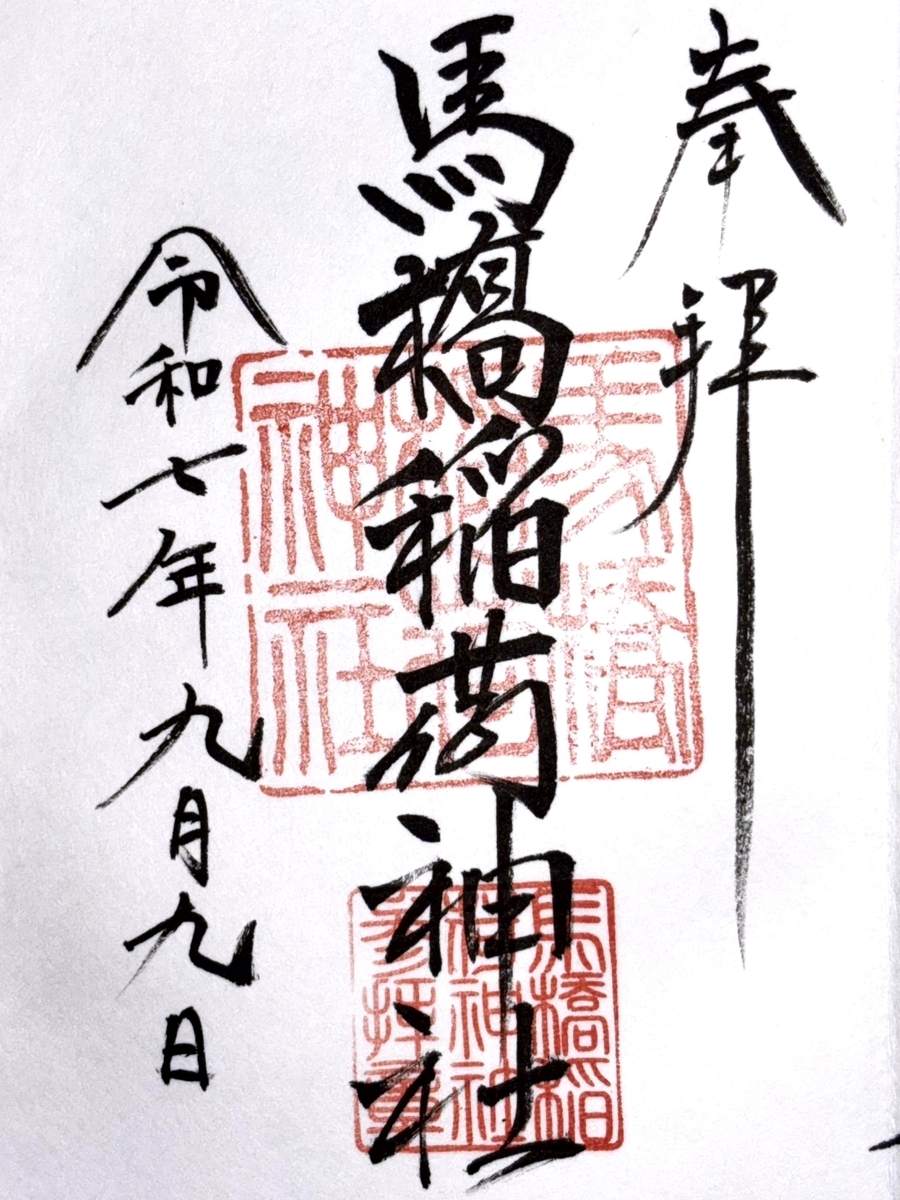 奉拝
馬橋稲荷神社
令和七年九月九日
馬橋
稲荷
神社
馬橋稲
荷神社
参拝章